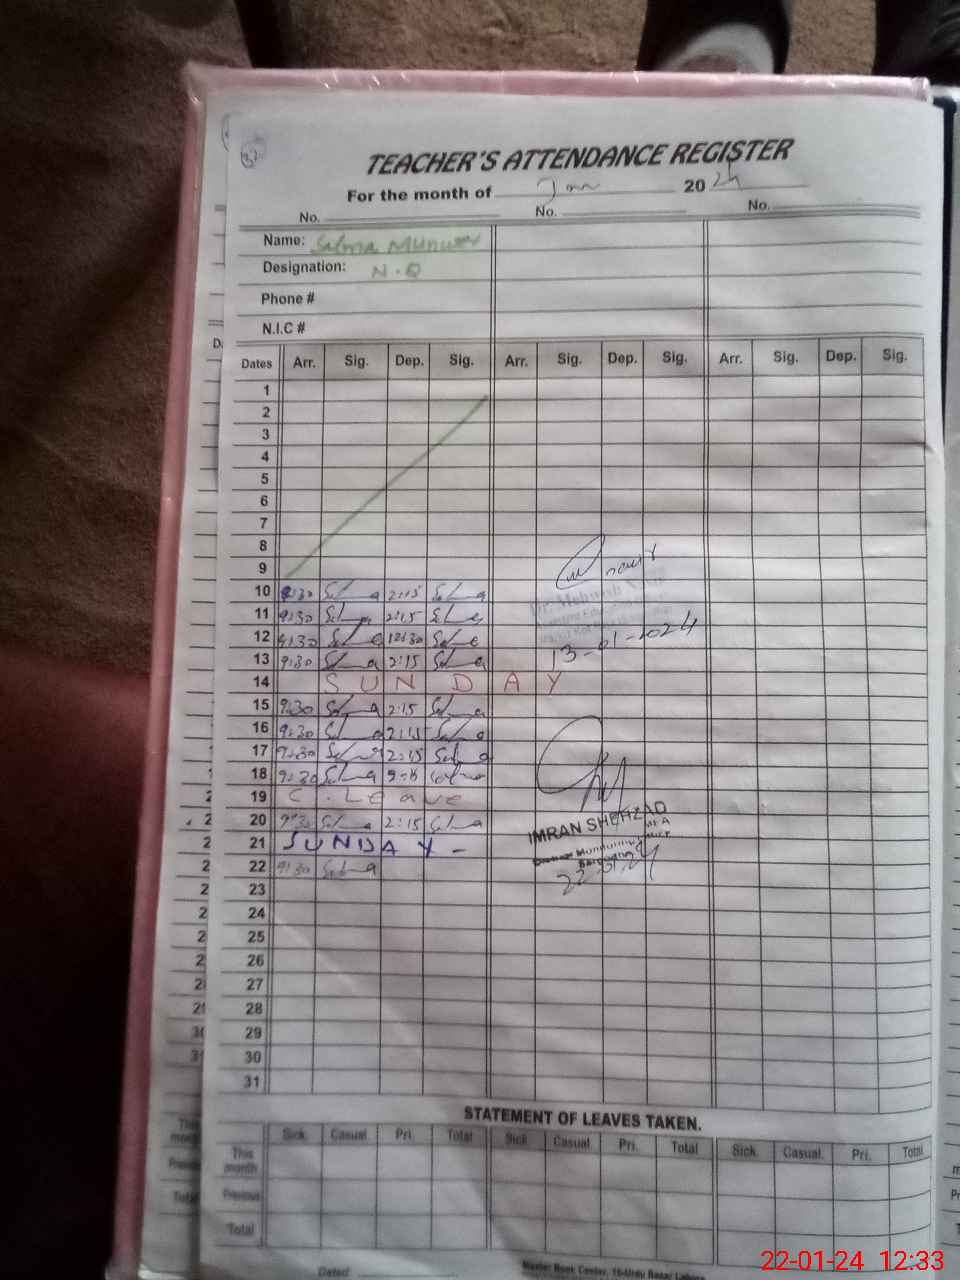 TEACHER'S ATTENDANCE REGISTER
For the month of Jan 2024
No. No. No.
Name: Salma Munwar
Designation: N.Q
Phone #
N.I.C #
Dates Arr. Sig. Dep. Sig. Arr. Sig. Dep. Sig. Arr. Sig. Dep. Sig.
1
2
3
4
5
6
7
8
9
10 9:30 Salma 2:15 Salma
11 9:30 Salma 2:15 Salma
12 9:30 Salma 12:30 Salma
13 9:30 Salma 2:15 Salma
13-01-2024
14 SUNDAY
15 9:30 Salma 2:15 Salma
16 9:30 Salma 2:15 Salma
17 9:30 Salma 2:15 Salma
18 9:30 Salma Salma
19 C. Leave
20 9:30 Salma 2:15 Salma
IMRAN SHEHZAD
21 SUNDAY -
22 9:30 Salma
22.01.24
23
24
25
26
27
28
29
30
31
STATEMENT OF LEAVES TAKEN.
Sick. Casual. Pri. Total Sick. Casual. Pri. Total Sick. Casual. Pri. Total
This month
Previous
Total
Dated:
Master Book Center, 16-Urdu Bazar Lahore
22-01-24 12:33